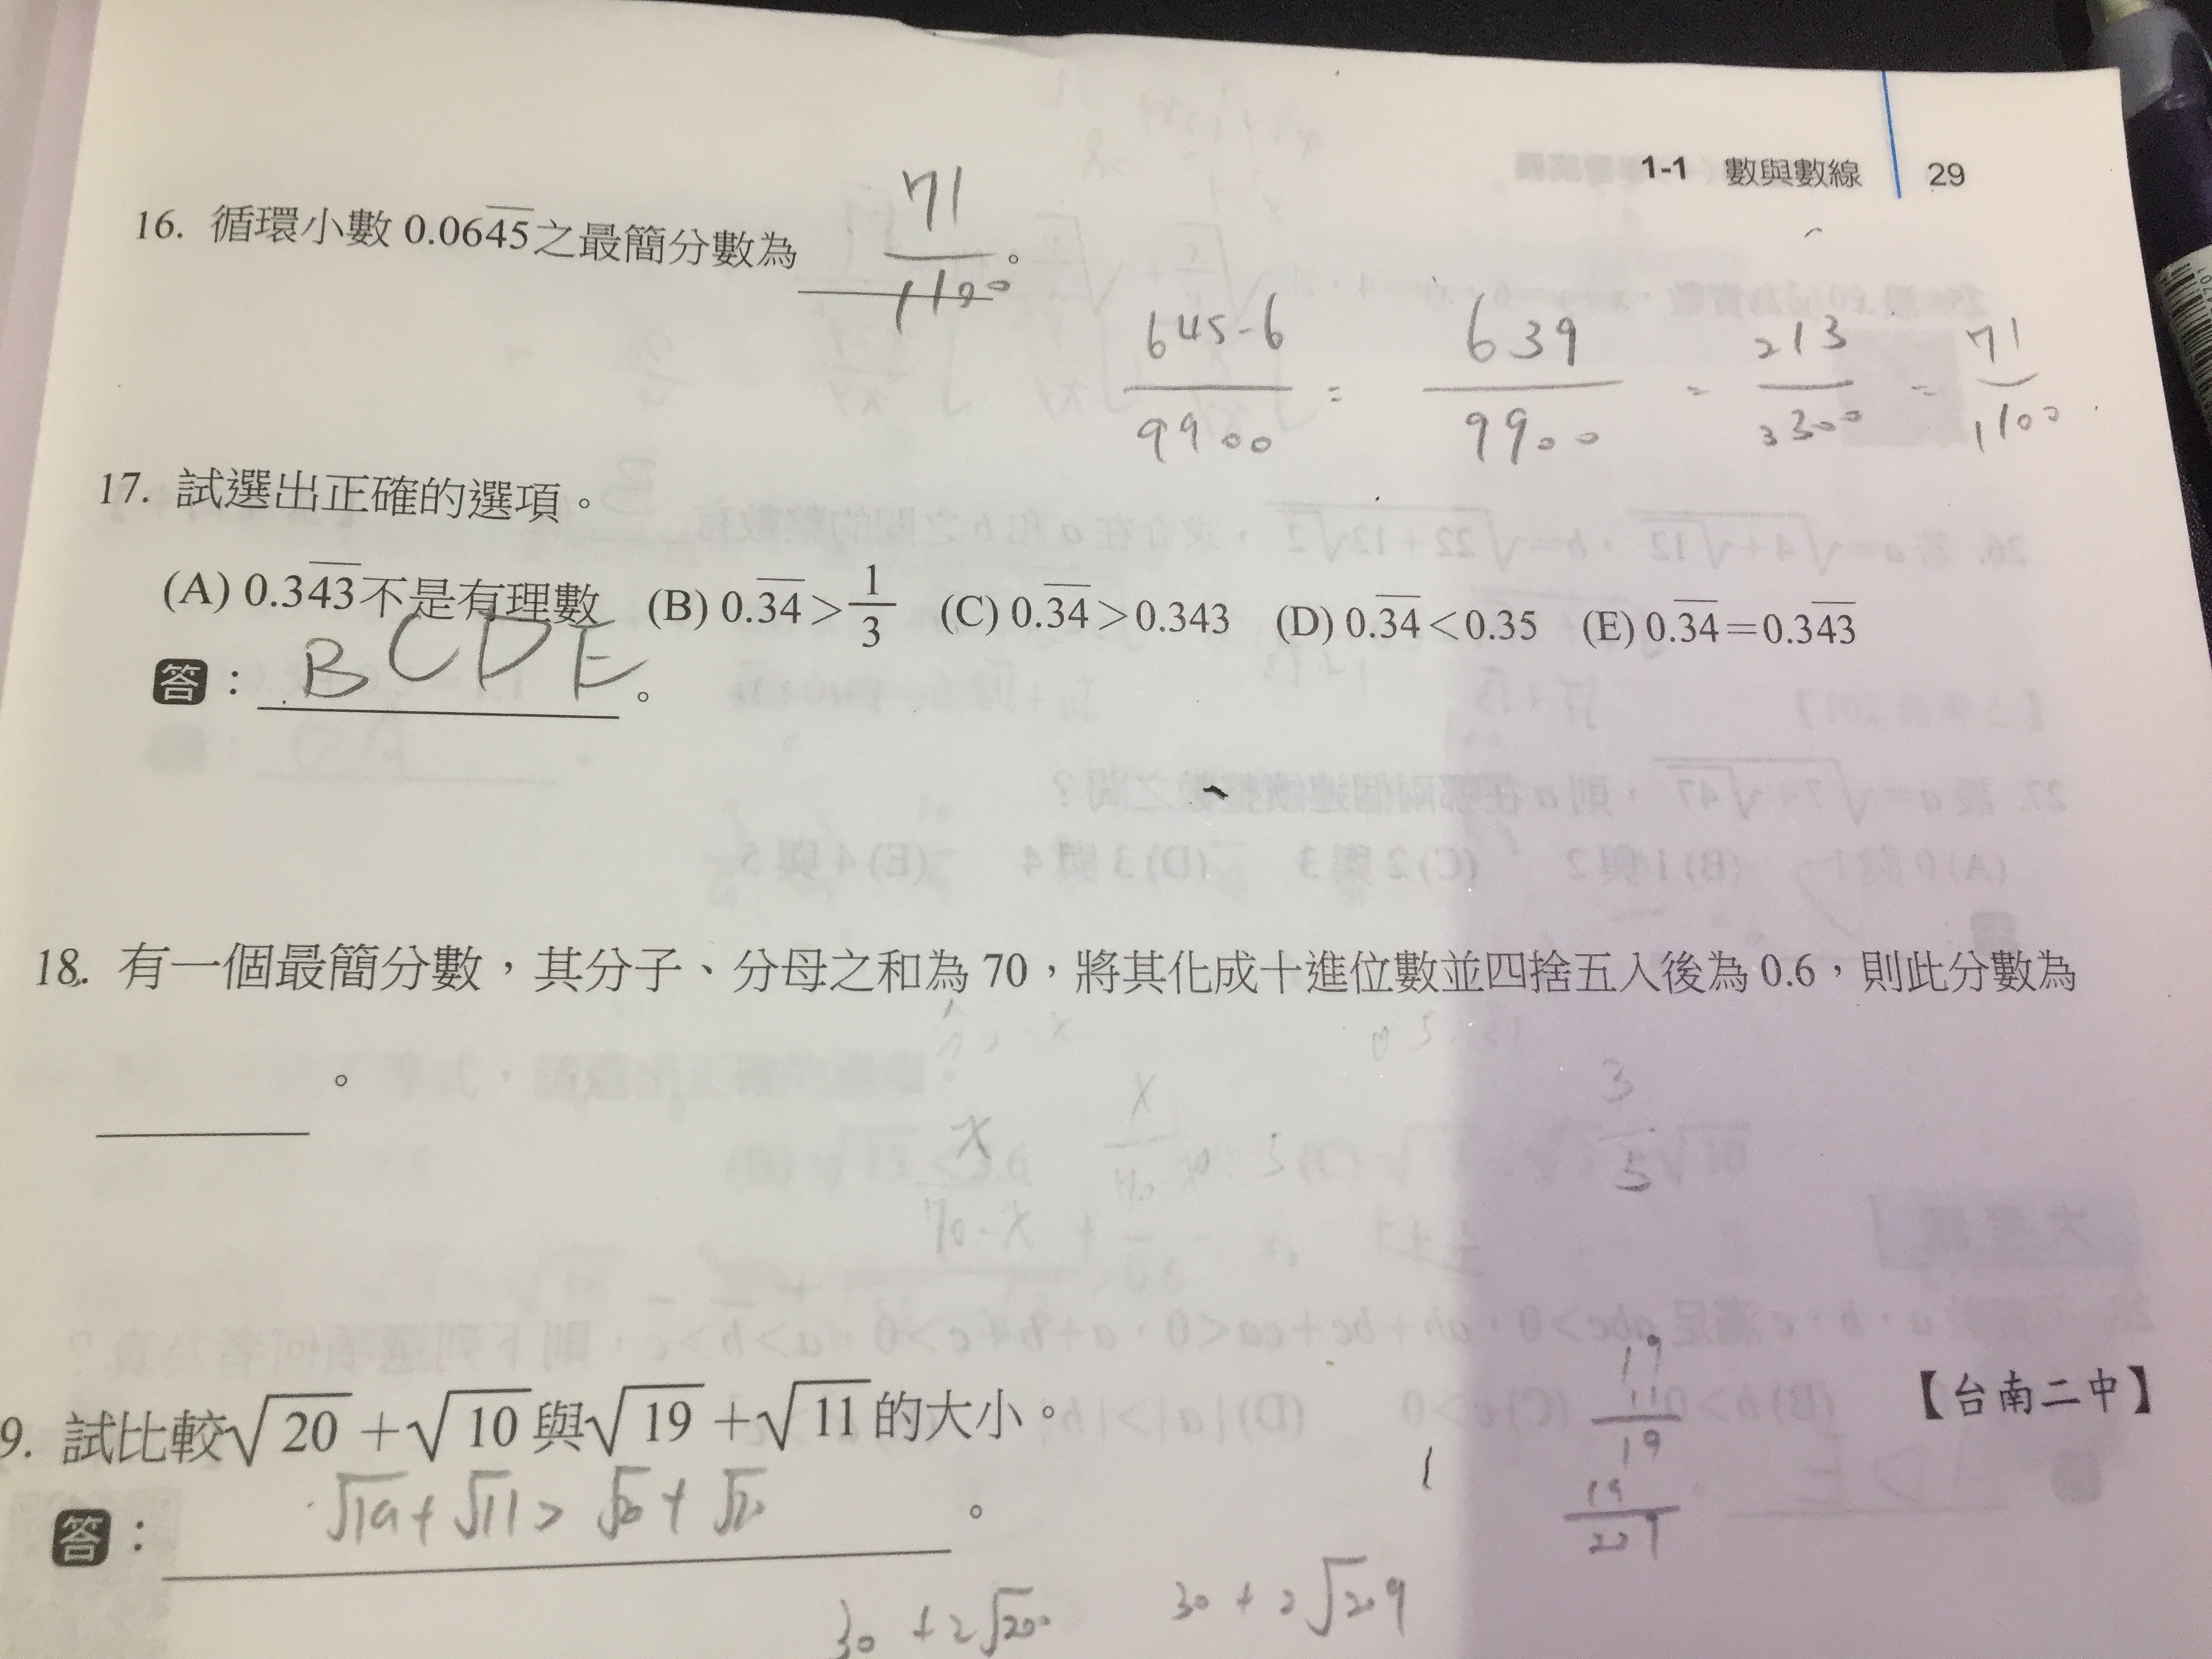 1-1 數與數線 29
16. 循環小數 0.06\overline{45}之最簡分數為 \frac{71}{1100}。
\frac{645-6}{9900} = \frac{639}{9900} = \frac{213}{3300} = \frac{71}{1100}
17. 試選出正確的選項。
(A) 0.3\overline{43}不是有理數 (B) 0.\overline{34}>\frac{1}{3} (C) 0.\overline{34}>0.343 (D) 0.\overline{34}<0.35 (E) 0.\overline{34}=0.3\overline{43}
答：BCDE。
18. 有一個最簡分數，其分子、分母之和為 70，將其化成十進位數並四捨五入後為 0.6，則此分數為
。
\frac{x}{70-x} \frac{3}{5}
9. 試比較√20+√10與√19+√11的大小。 【台南二中】
19
11
19
19
209
答：√19+√11>。
30+2√200 30+2√209